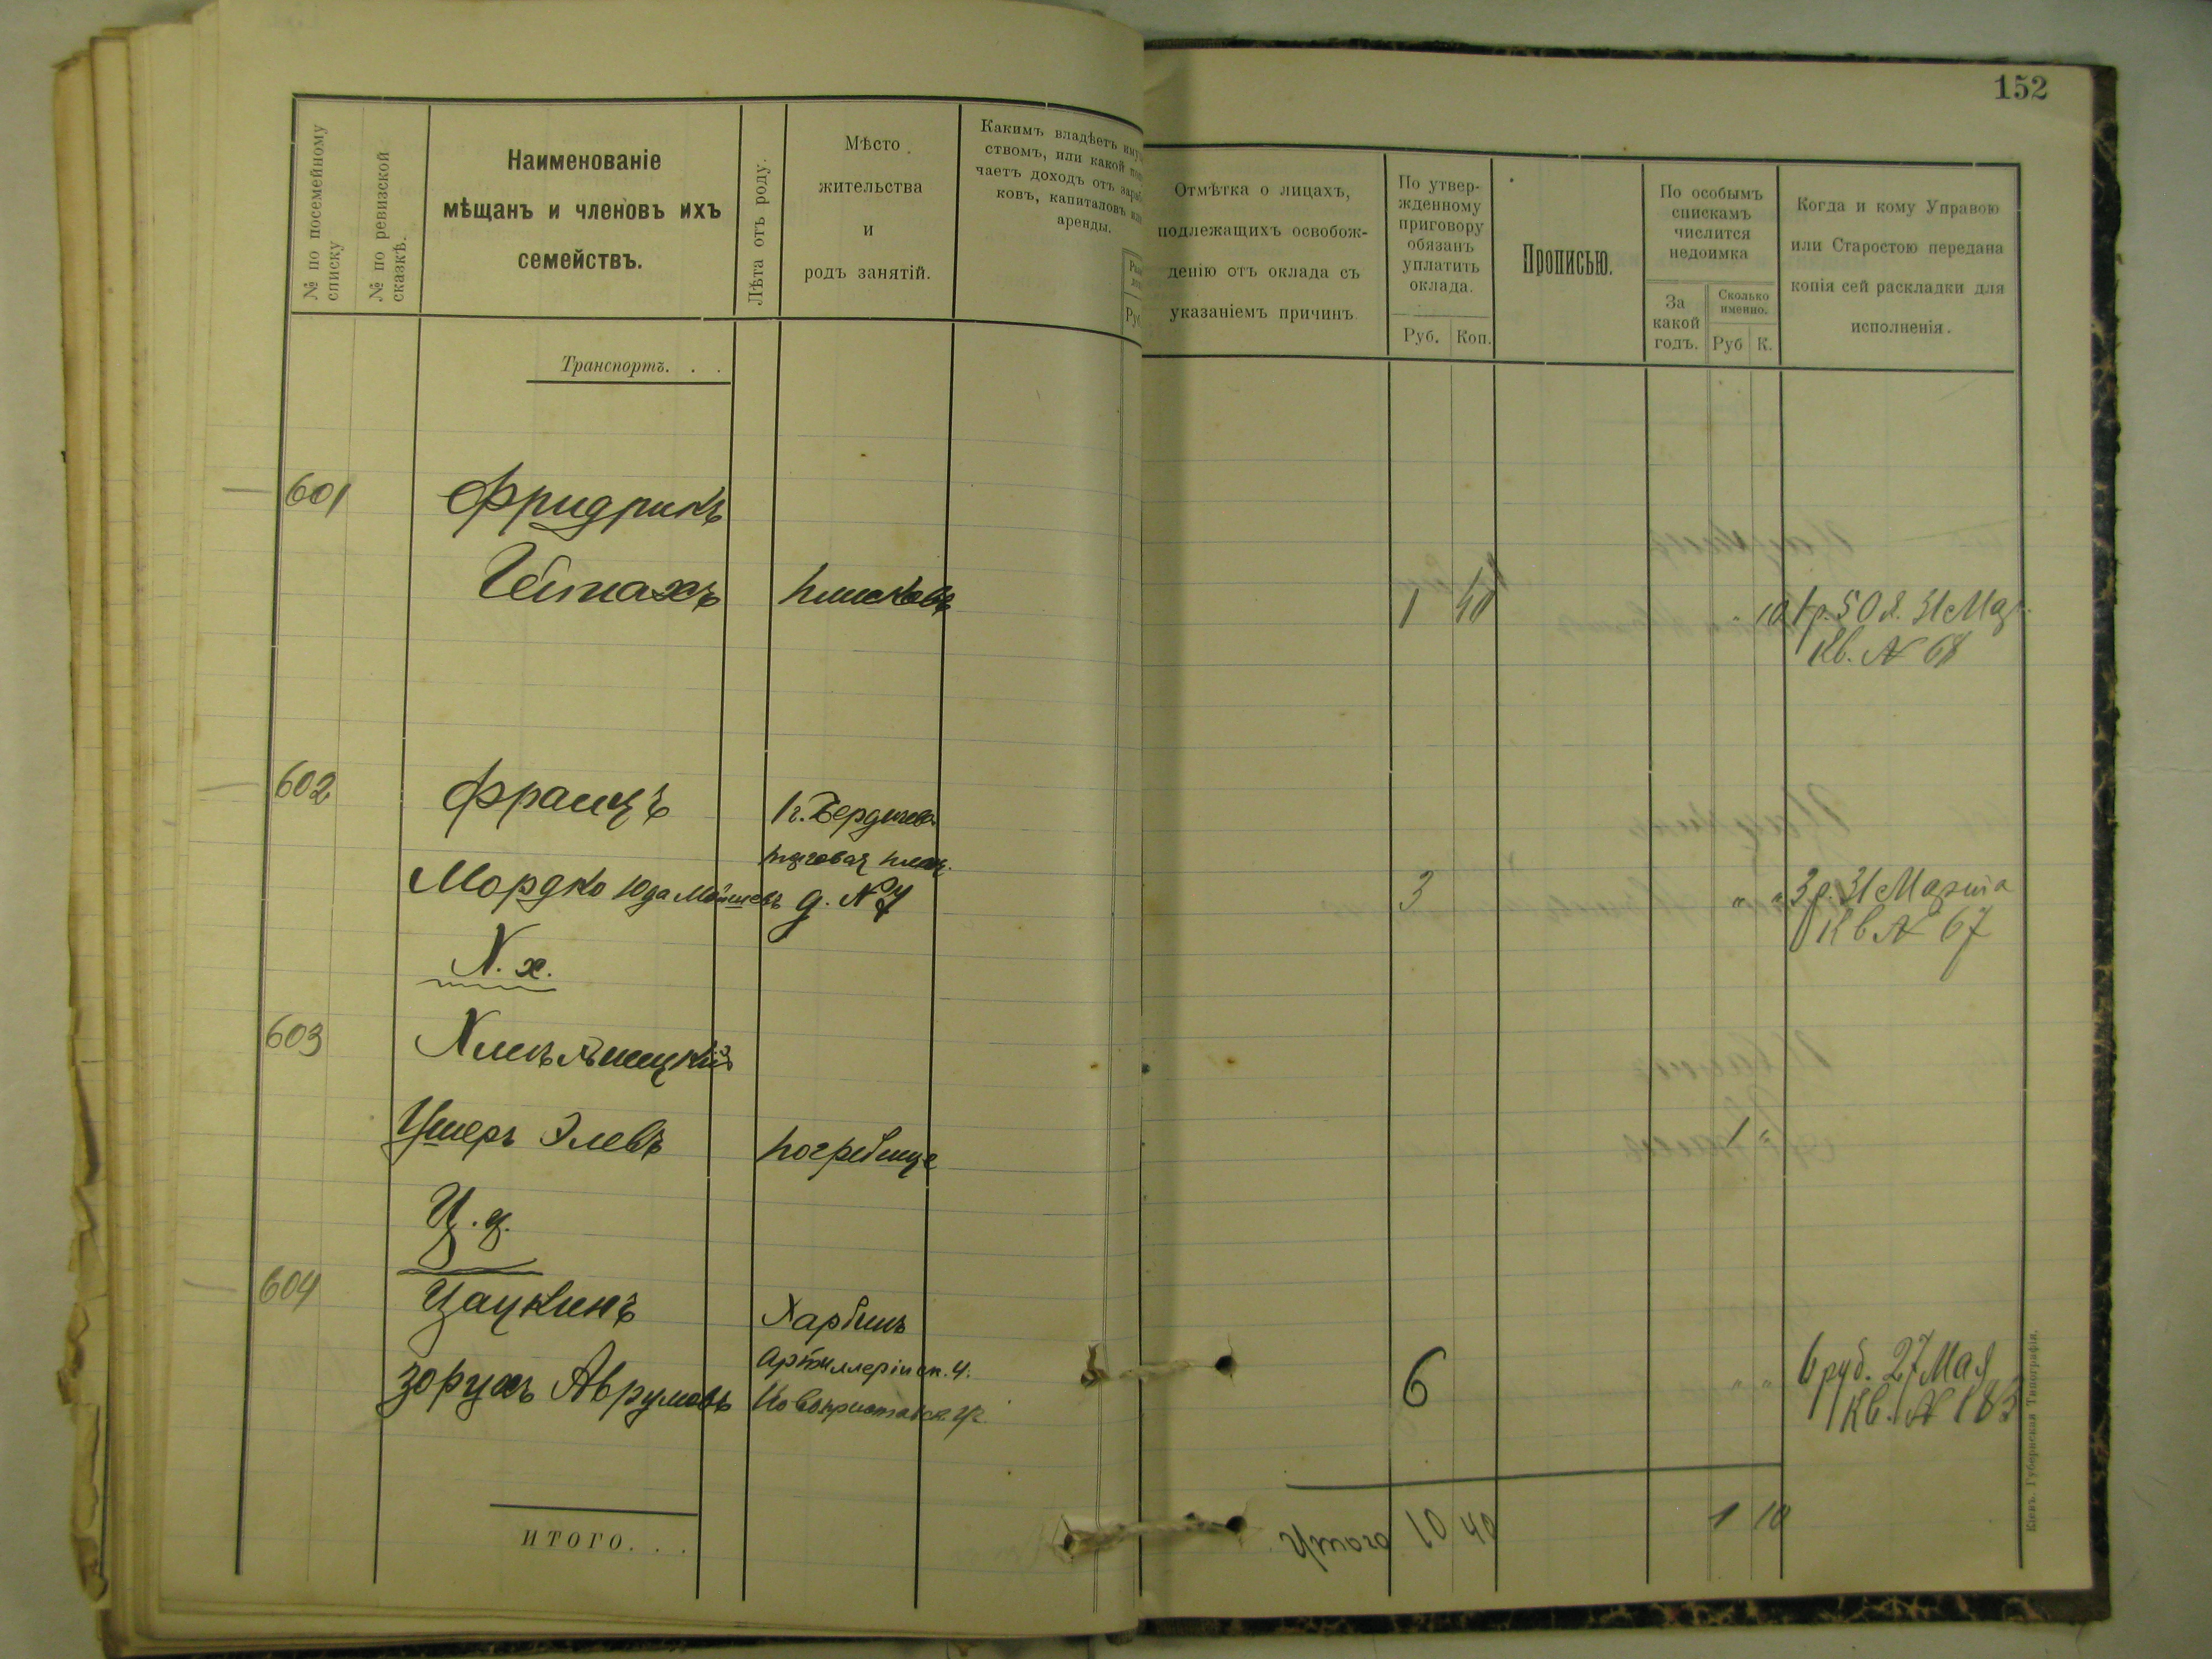 152
№ по посемейному списку
№ по ревизской сказкѣ.
Наименованіе
мѣщанъ и членовъ ихъ
семействъ.
Лѣта отъ роду.
Мѣсто
жительства
и
родъ занятій.
Какимъ владѣетъ
ствомъ, или какой
чаетъ доходъ отъ
ковъ, капиталовъ
аренды.
Руб
Отмѣтка о лицахъ,
подлежащихъ освобож-
денію отъ оклада съ
указаніемъ причинъ
По утвер-
жденному
приговору
обязанъ
уплатить
оклада.
Руб. Коп.
Прописью.
По особымъ
спискамъ
числится
недоимка
За
какой
годъ.
Сколько
именно.
Руб К.
Когда и кому Управою
или Старостою передана
копія сей раскладки для
исполненія.
Транспортъ. . .
601 Фридрихъ
Плисковъ 1 40 " 10 1 р. 50 к. 31 Мар.
Кв. № 68
602 Францъ г. Бердичевъ
торговая площ.
Мордко Юда Мошковъ д. № 7 3 " " 3 р. 31 Марта
Кв № 67
Х. х.
603 Хмельницкій
Ушеръ Элевъ Погребище 1 "
Ц. ц.
604 Цацкинъ Харбинъ
Артиллерійск. ч.
Зорухъ Аврумовъ Новопристанск. ул. 6 " " 6 руб. 27 Мая
Кв. № 183
ИТОГО. . .
Итого 10 40 1 10
Кіевъ. Губернская Типографія.